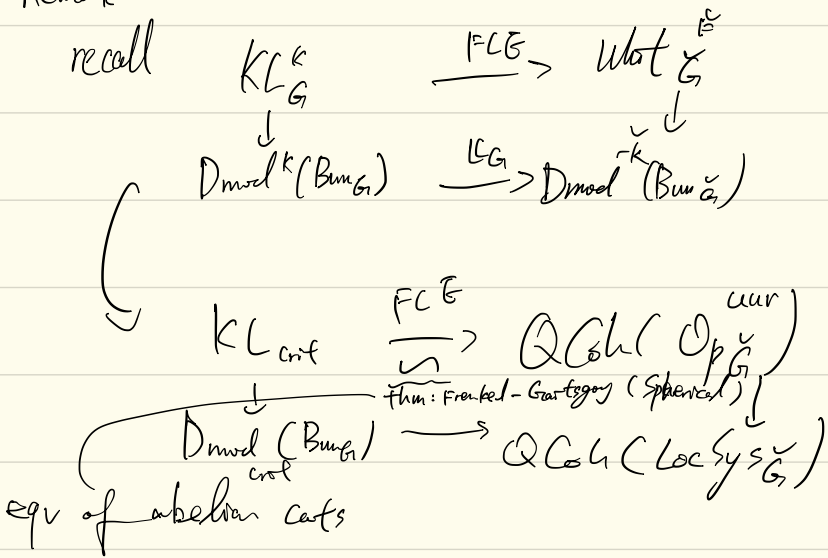 recall KL^K_G FLE → Whit^Ǩ_Ǧ
↓ ↓
Dmod^K(Bun_G) LL_G → Dmod^{-Ǩ}(Bun_Ǧ)
KL_crit FLE → QCoh(Op_Ǧ^unr)
↓ thm: Frenkel-Gaitsgory (Spherical) ↓
Dmod_crit(Bun_G) → QCoh(LocSys_Ǧ)
eqv of abelian cats